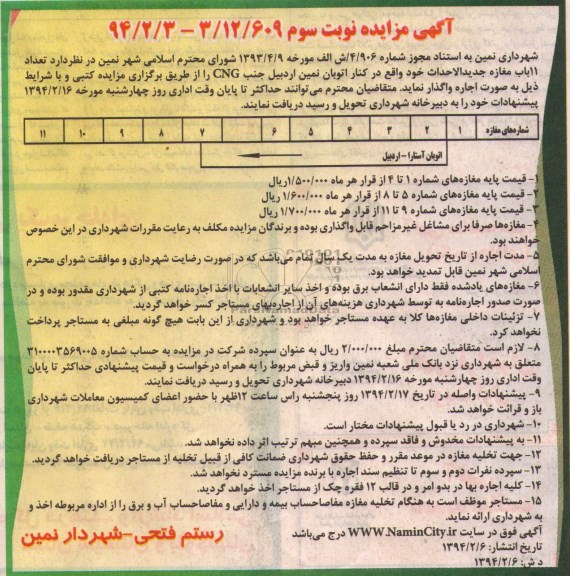 آگهی مزایده نوبت سوم ۳/۱۲/۶۰۹ - ۹۴/۲/۳
شهرداری نمین به استناد مجوز شماره ۴/۹۰۶/ش الف مورخه ۱۳۹۳/۴/۹ شورای محترم اسلامی شهر نمین در نظردارد تعداد
۱۱باب مغازه جدیدالاحداث خود واقع در کنار اتوبان نمین اردبیل جنب CNG را از طریق برگزاری مزایده کتبی و با شرایط
ذیل به صورت اجاره واگذار نماید. متقاضیان محترم می‌توانند حداکثر تا پایان وقت اداری روز چهارشنبه مورخه ۱۳۹۴/۲/۱۶
پیشنهادات خود را به دبیرخانه شهرداری تحویل و رسید دریافت نمایند.
شماره‌های مغازه ۱ ۲ ۳ ۴ ۵ ۶ ۷ ۸ ۹ ۱۰ ۱۱
اتوبان آستارا - اردبیل
۱- قیمت پایه مغازه‌های شماره ۱ تا ۴ از قرار هر ماه ۱/۵۰۰/۰۰۰ریال
۲- قیمت پایه مغازه‌های شماره ۵ تا ۸ از قرار هر ماه ۱/۶۰۰/۰۰۰ریال
۳- قیمت پایه مغازه‌های شماره ۹ تا ۱۱ از قرار هر ماه ۱/۷۰۰/۰۰۰ ریال
۴- مغازه‌ها صرفا برای مشاغل غیرمزاحم قابل واگذاری بوده و برندگان مزایده مکلف به رعایت مقررات شهرداری در این خصوص
خواهند بود.
۵- مدت اجاره از تاریخ تحویل مغازه به مدت یک سال تمام می‌باشد که در صورت رضایت شهرداری و موافقت شورای محترم
اسلامی شهر نمین قابل تمدید خواهد بود.
۶- مغازه‌های یادشده فقط دارای انشعاب برق بوده و اخذ سایر انشعابات با اخذ اجازه‌نامه کتبی از شهرداری مقدور بوده و در
صورت صدور اجازه‌نامه به توسط شهرداری هزینه‌های آن از اجاره‌بهای مستاجر کسر خواهد گردید.
۷- تزئینات داخلی مغازه‌ها کلا به عهده مستاجر خواهد بود و شهرداری از این بابت هیچ گونه مبلغی به مستاجر پرداخت
نخواهد کرد.
۸- لازم است متقاضیان محترم مبلغ ۲/۰۰۰/۰۰۰ ریال به عنوان سپرده شرکت در مزایده به حساب شماره ۳۱۰۰۰۰۳۵۶۹۰۰۵
متعلق به شهرداری نزد بانک ملی شعبه نمین واریز و قبض مربوط را به همراه درخواست و قیمت پیشنهادی حداکثر تا پایان
وقت اداری روز چهارشنبه مورخه ۱۳۹۴/۲/۱۶ دبیرخانه شهرداری تحویل و رسید دریافت نمایند.
۹- پیشنهادات واصله در تاریخ ۱۳۹۴/۲/۱۷ روز پنجشنبه راس ساعت ۱۲ظهر با حضور اعضای کمیسیون معاملات شهرداری
باز و قرائت خواهد شد.
۱۰- شهرداری در رد یا قبول پیشنهادات مختار است.
۱۱- به پیشنهادات مخدوش و فاقد سپرده و همچنین مبهم ترتیب اثر داده نخواهد شد.
۱۲- جهت تخلیه مغازه در موعد مقرر و حفظ حقوق شهرداری ضمانت کافی از قبیل تخلیه از مستاجر دریافت خواهد گردید.
۱۳- سپرده نفرات دوم و سوم تا تنظیم سند اجاره با برنده مزایده مسترد نخواهد شد.
۱۴- کلیه اجاره بها در بدو امر و در قالب ۱۲ فقره چک از مستاجر اخذ خواهد گردید.
۱۵- مستاجر موظف است به هنگام تخلیه مغازه مفاصاحساب بیمه و دارایی و مفاصاحساب آب و برق را از اداره مربوطه اخذ و
به شهرداری ارائه نماید.
آگهی فوق در سایت WWW.NaminCity.ir درج می‌باشد
تاریخ انتشار: ۱۳۹۴/۲/۶
د ش: ۱۳۹۴/۲/۶
رستم فتحی-شهردار نمین